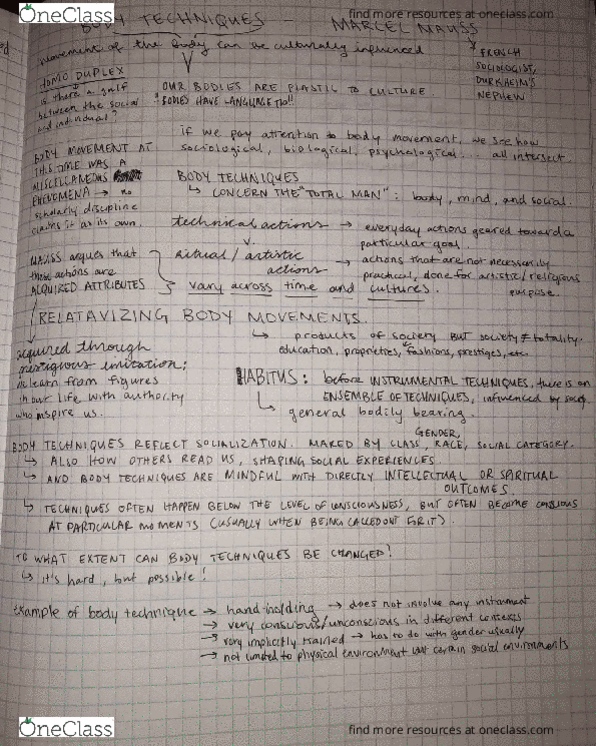 OneClass
find more resources at oneclass.com
BODY TECHNIQUES - MARCEL MAUSS
Movement of the body can be culturally influenced
FRENCH
SOCIOLOGIST,
DURKHEIM'S
NEPHEW
HOMO DUPLEX
is there a gulf
between the social
and individual?
OUR BODIES ARE PLASTIC TO CULTURE
BODIES HAVE LANGUAGE TOO!!
if we pay attention to body movement, we see how
sociological, biological, psychological... all intersect.
BODY MOVEMENT AT
THIS TIME WAS A
MISCELLANEOUS
PHEUMENA → no
scholarly discipline
claims it as its own.
BODY TECHNIQUES
↳ CONCERN THE "TOTAL MAN": body, mind, and social.
technical actions → everyday actions geared toward a
particular goal.
v.
ritual/artistic
actions → actions that are not necessarily
practical, done for artistic/religious
purpose.
vary across time and cultures.
MAUSS argues that
these actions are
ACQUIRED ATTRIBUTES
RELATAVIZING BODY MOVEMENTS.
↳ products of society BUT society ≠ totality.
education, proprieties, fashions, prestiges, etc.
acquired through
prestigious imitation;
we learn from figures
in our life with authority
who inspire us.
HABITUS: before INSTRUMENTAL TECHNIQUES, there is an
ENSEMBLE OF TECHNIQUES, influenced by
↳ general bodily bearing.
BODY TECHNIQUES REFLECT SOCIALIZATION. MARED BY CLASS, GENDER, RACE, SOCIAL CATEGORY.
↳ ALSO HOW OTHERS READ US, SHAPING SOCIAL EXPERIENCES
↳ AND BODY TECHNIQUES ARE MINDFUL WITH DIRECTLY INTELLECTUAL OR SPIRITUAL
OUTCOMES.
↳ TECHNIQUES OFTEN HAPPEN BELOW THE LEVEL OF CONSCIOUSNESS, BUT OFTEN BECOME CONSCIOUS
AT PARTICULAR MOMENTS (USUALLY WHEN BEING CALLED OUT FOR IT).
TO WHAT EXTENT CAN BODY TECHNIQUES BE CHANGED?
↳ it's hard, but possible!
example of body technique → hand-holding → does not involve any instrument
→ very conscious/unconscious in different contexts
→ very implicitly trained → has to do with gender usually
→ not limited to physical environment but certain social environments
OneClass
find more resources at oneclass.com